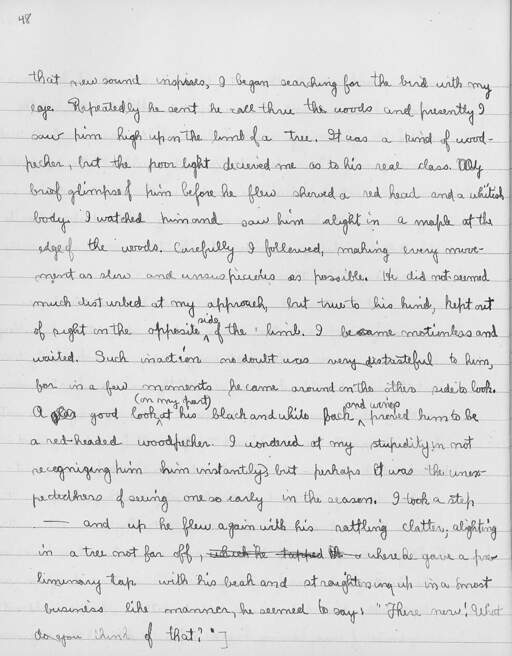 48
that new sound inspires, I began searching for the bird with my
eye. Repeatedly he sent he call thru the woods and presently I
saw him high up on the limb of a tree. It was a kind of wood-
pecker, but the poor light deceived me as to his real class. My
brief glimpse of him before he flew showed a red head and a whitish
body. I watched him and saw him alight in a maple at the
edge of the woods. Carefully I followed, making every move-
ment as slow and unsuspicious as possible. He did not seemed
much disturbed at my approach, but true to his kind, kept out
of sight on the opposite side of the limb. I became motionless and
waited. Such inaction no doubt was very distasteful to him,
for in a few moments he came around on the other side to look.
A good look (on my part) at his black and white back and wings proved him to be
a red-headed woodpecker. I wondered at my stupidity in not
recognizing him him instantly; but perhaps it was the unex-
pectedness of seeing one so early in the season. I took a step
— and up he flew again with his rattling clatter, alighting
in a tree not far off, which he tapped where he gave a pre-
liminary tap with his beak and straightening up in a most
business like manner, he seemed to say: "There now! What
do you think of that?"]